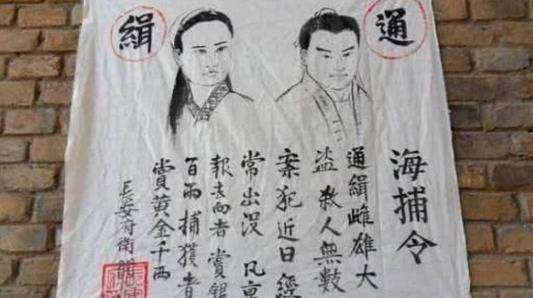 通緝
海捕令
通緝雌雄大
盜殺人無數
案犯近日經
常出沒凡
報去向者賞銀
百兩捕獲者
賞黃金千兩
長安府衙